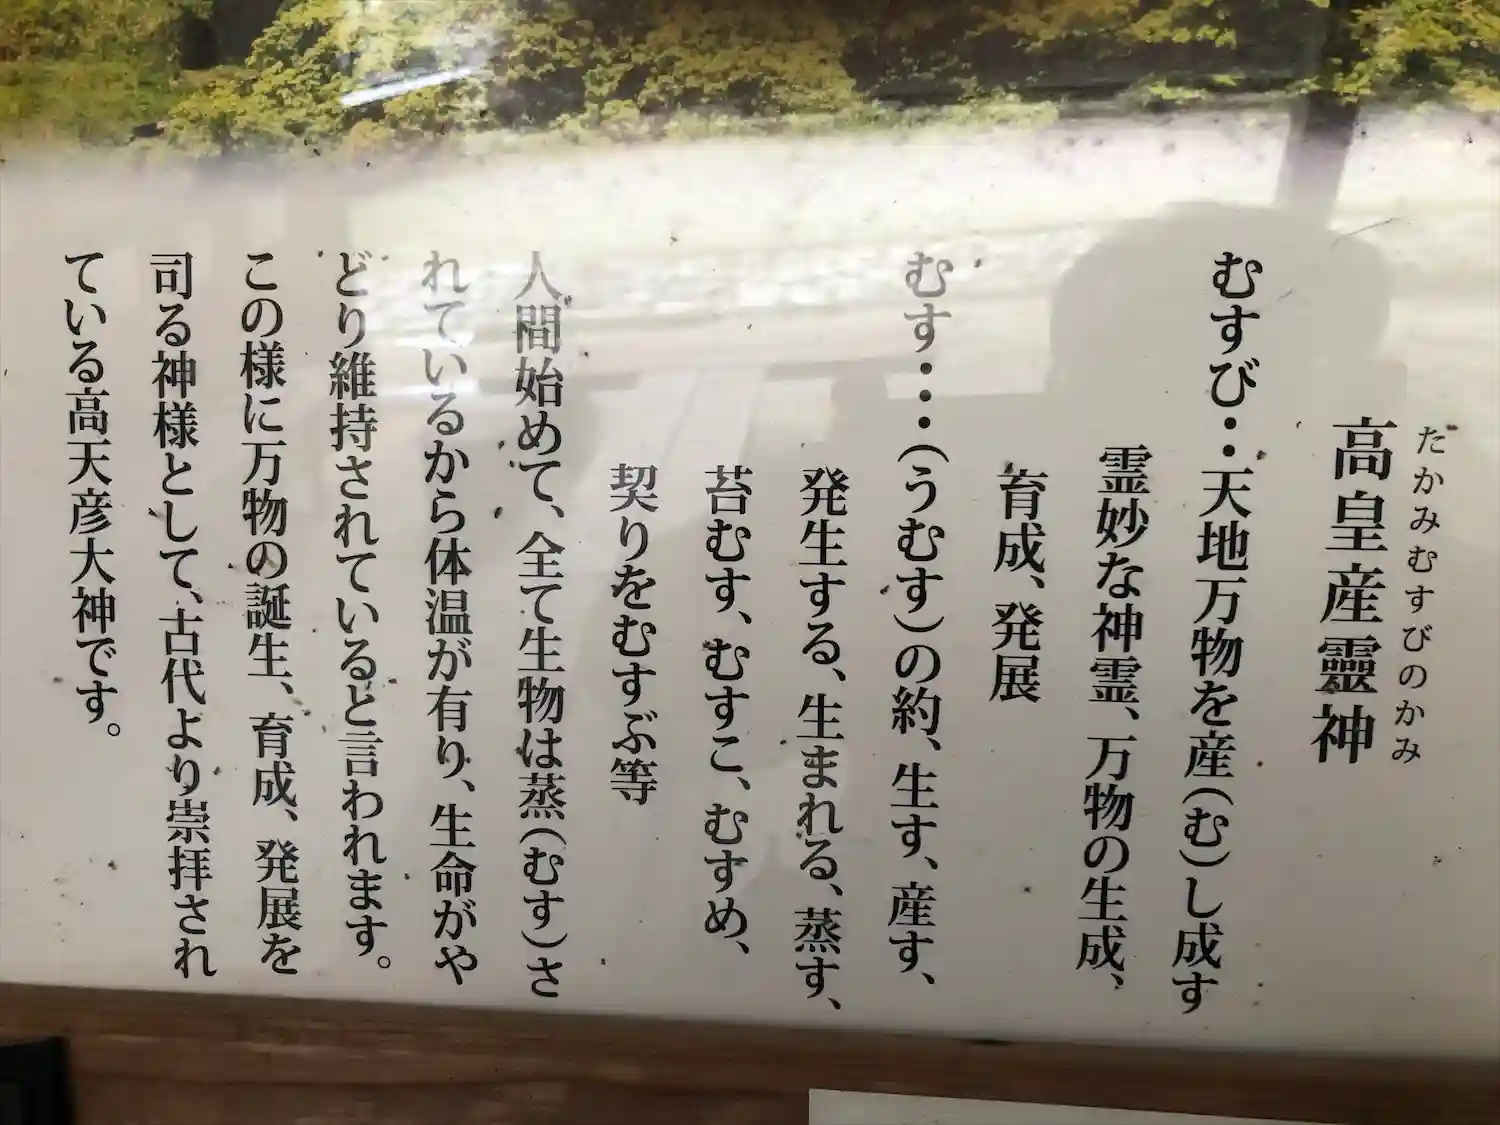 たかみむすびのかみ
高皇産靈神
むすび‥天地万物を産(む)し成す
霊妙な神霊、万物の生成、
育成、発展
むす・・・(うむす)の約、生す、産す、
発生する、生まれる、蒸す、
苔むす、むすこ、むすめ、
契りをむすぶ等
人間始めて、全て生物は蒸(むす)さ
れているから体温が有り、生命がや
どり維持されていると言われます。
この様に万物の誕生、育成、発展を
司る神様として、古代より崇拝され
ている高天彦大神です。